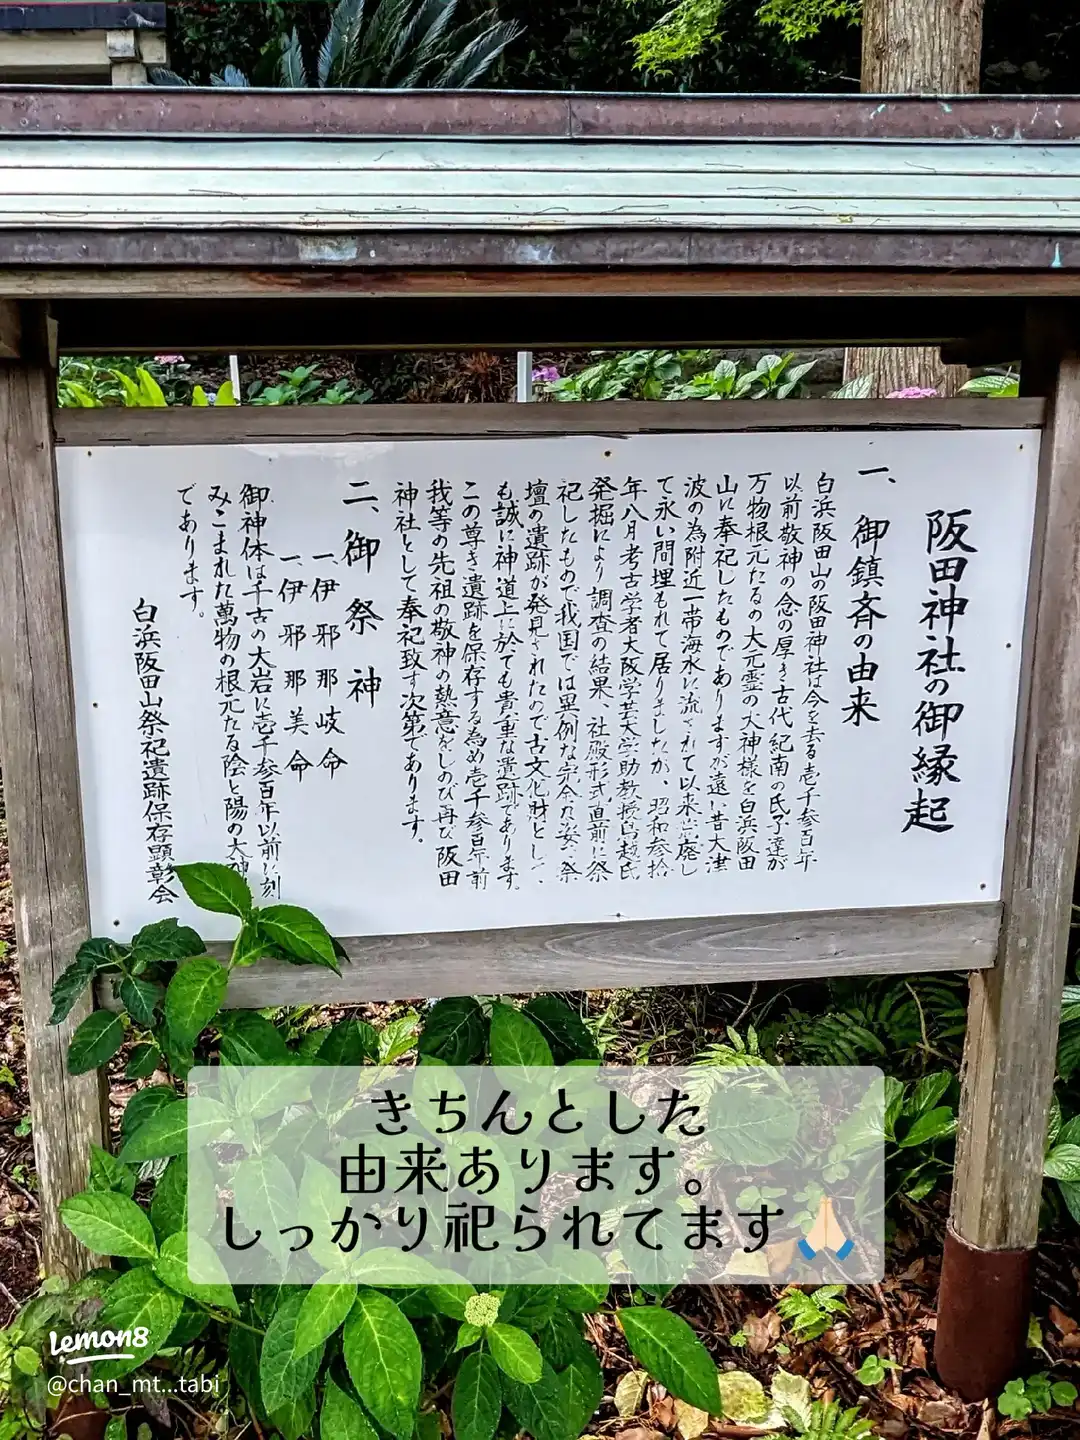 阪田神社の御縁起
一、御鎮斉の由来
白浜阪田山の阪田神社は今を去る壱千参百年
以前敬神の念の厚き古代紀南の氏子達が
万物根元たるの大元霊の大神様を白浜阪田
山に奉祀したものでありますが遠い昔大津
波の為附近一帯海水に流されて以来荒廃し
て永い間埋もれて居りましたが、昭和参拾
年八月考古学者大阪学芸大学助教授鳥越氏
発掘により調査の結果、社殿形式直前に祭
祀したもので我国では異例な完全な姿で祭
壇の遺跡が発見されたので古文化財として、
も誠に神道上に於ても貴重な遺跡であります。
この尊き遺跡を保存する為め壱千参百年前
我等の先祖の敬神の熱意をしのび再び阪田
神社として奉祀致す次第であります。
二、御祭神
一、伊邪那岐命
一、伊邪那美命
御神体は千古の大岩に壱千参百年以前に刻
みこまれた萬物の根元たる陰と陽の大神
であります。
白浜阪田山祭祀遺跡保存顕彰会
きちんとした
由来あります。
しっかり祀られてます🙏🏻
Lemon8
@chan_mt...tabi